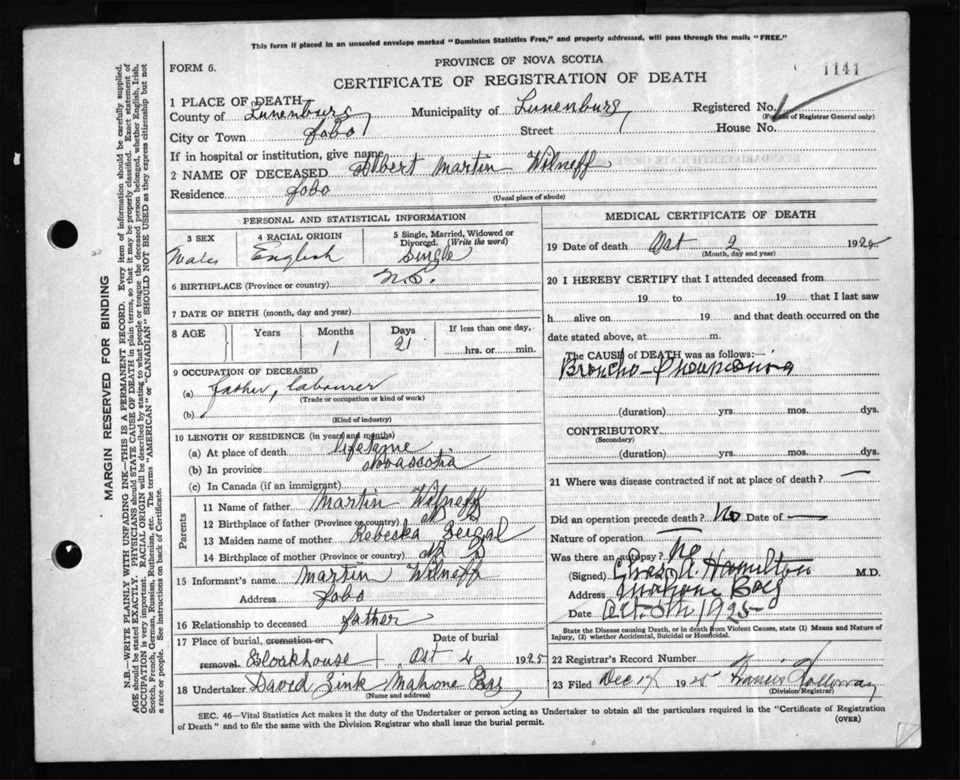 This form if placed in an unsealed envelope marked "Dominion Statistics Free," and properly addressed, will pass through the mails "FREE."
FORM 6.
PROVINCE OF NOVA SCOTIA
CERTIFICATE OF REGISTRATION OF DEATH
1141
1 PLACE OF DEATH
County of Lunenburg Municipality of Lunenburg Registered No.
(For use of Registrar General only)
City or Town Street House No.
If in hospital or institution, give name
2 NAME OF DECEASED Albert Martin Wilneff
Residence
(Usual place of abode)
PERSONAL AND STATISTICAL INFORMATION
3 SEX 4 RACIAL ORIGIN 5 Single, Married, Widowed or Divorced. (Write the word)
Male English Single
6 BIRTHPLACE (Province or country) N.S.
7 DATE OF BIRTH (month, day and year)
8 AGE Years Months Days If less than one day,
1 21 hrs. or min.
9 OCCUPATION OF DECEASED
(a) father, labourer
(Trade or occupation or kind of work)
(b)
(Kind of industry)
10 LENGTH OF RESIDENCE (in years and months)
(a) At place of death lifetime
(b) In province Nova Scotia
(c) In Canada (if an immigrant)
Parents
11 Name of father Martin Wilneff
12 Birthplace of father (Province or country) N S
13 Maiden name of mother
14 Birthplace of mother (Province or country) N S
15 Informant's name Martin Wilneff
Address
16 Relationship to deceased father
17 Place of burial, cremation or Date of burial
removal. Blockhouse Oct 4 1925
18 Undertaker David Zink Mahone Bay
(Name and address)
MEDICAL CERTIFICATE OF DEATH
19 Date of death Oct 2 1925
(Month, day and year)
20 I HEREBY CERTIFY that I attended deceased from
19 to 19 that I last saw
h alive on 19 and that death occurred on the
date stated above, at m.
The CAUSE of DEATH was as follows:
Broncho-Pneumonia
(duration) yrs. mos. dys.
CONTRIBUTORY
(Secondary)
(duration) yrs. mos. dys.
21 Where was disease contracted if not at place of death? —
Did an operation precede death? No Date of —
Nature of operation —
Was there an autopsy? No
(Signed) Chas. A. Hamilton M.D.
Address Mahone Bay
Date Oct. 5th 1925
State the Disease causing Death, or in death from Violent Causes, state (1) Means and Nature of
Injury, (2) whether Accidental, Suicidal or Homicidal.
22 Registrar's Record Number
23 Filed Dec 1925 Francis Holloway
(Division Registrar)
SEC. 46—Vital Statistics Act makes it the duty of the Undertaker or person acting as Undertaker to obtain all the particulars required in the "Certificate of Registration
of Death" and to file the same with the Division Registrar who shall issue the burial permit. (OVER)
MARGIN RESERVED FOR BINDING
N.B.—WRITE PLAINLY WITH UNFADING INK—THIS IS A PERMANENT RECORD. Every item of information should be carefully supplied.
AGE should be stated EXACTLY. PHYSICIANS should STATE CAUSE OF DEATH in plain terms, so that it may be properly classified. Exact statement of
OCCUPATION is very important. RACIAL ORIGIN will be described by stating to what people or tongue the deceased person belonged, whether English, Irish,
Scotch, French, German, Russian, Ruthenian, etc. The terms "AMERICAN" or "CANADIAN" SHOULD NOT BE USED as they express citizenship but not
a race or people. See instructions on back of Certificate.